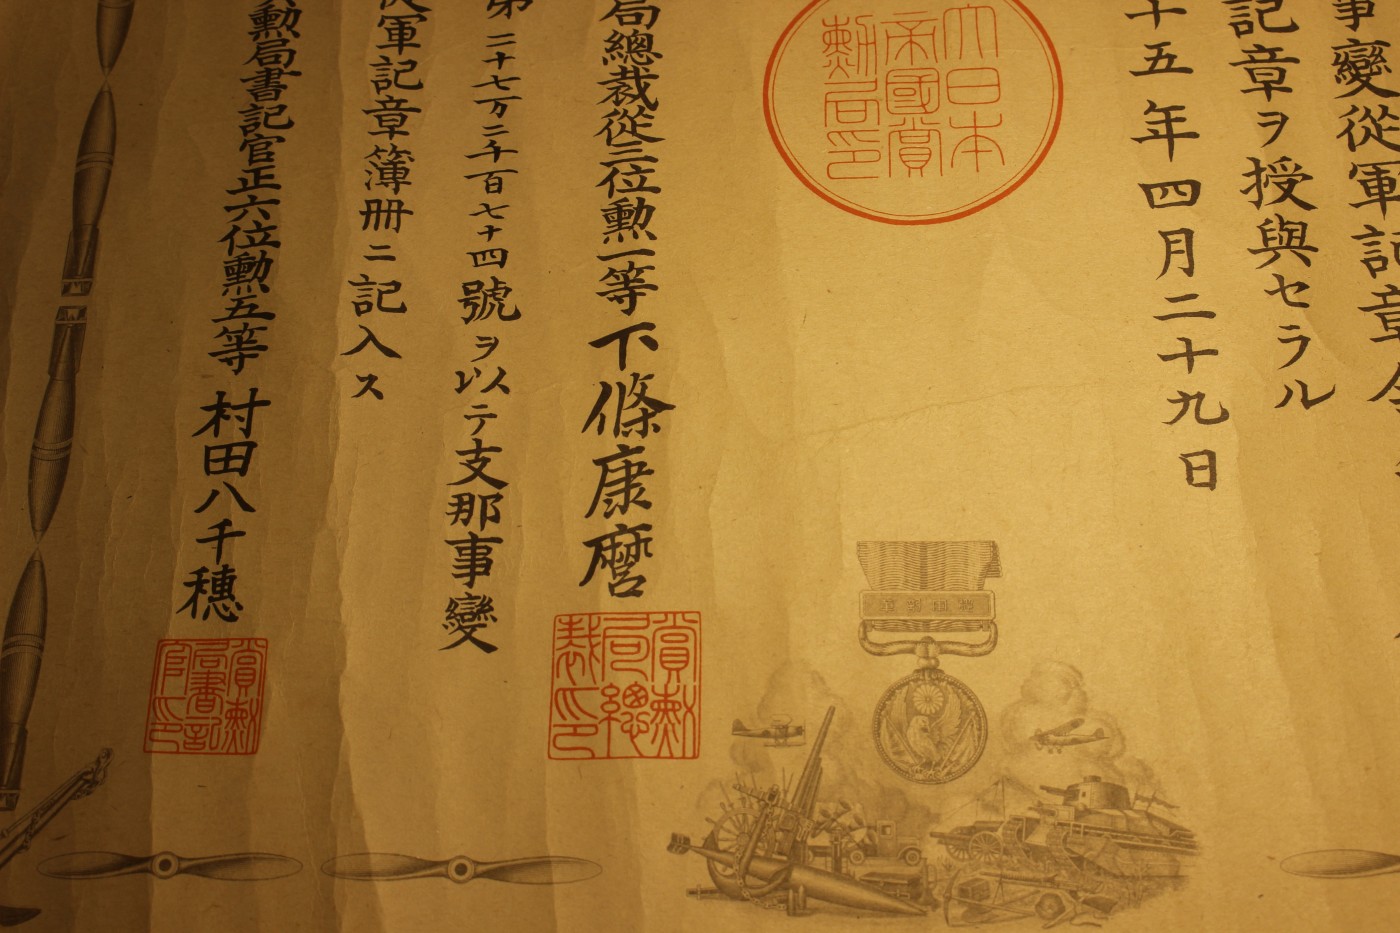 事變從軍記章令
記章ヲ授與セラル
十五年四月二十九日
大日本
帝國賞
勳局印
局總裁從三位勳一等下條康麿
賞勳
局總
裁印
第二十七万二千百七十四號ヲ以テ支那事變
從軍記章簿册ニ記入ス
勳局書記官正六位勳五等村田八千穗
賞勳
局書記
官印